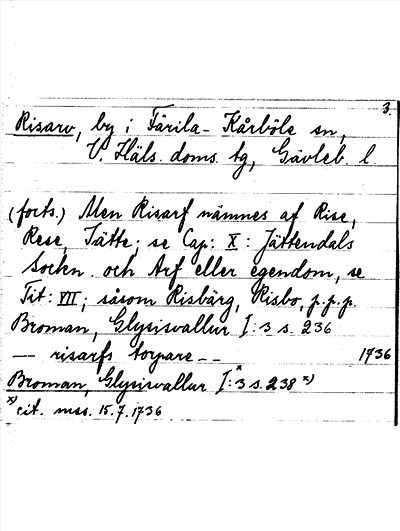 3.
Risarv, by i Färila-Kårböle sn,
V. Häls. doms. tg, Gävleb. l.
(forts.) Men Risarf nämnes af Rise,
Rese, Jätte; se Cap: X: Jättendals
Sockn. och Arf eller egendom, se
Tit: VII; såsom Risbärg, Risbo, p.p.p.
Broman, Glysisvallur I:3 s. 236
-- risarfs torpare -- 1736
Broman, Glysisvallur I:3 s. 238 x)
x) cit. mss. 15.7.1736